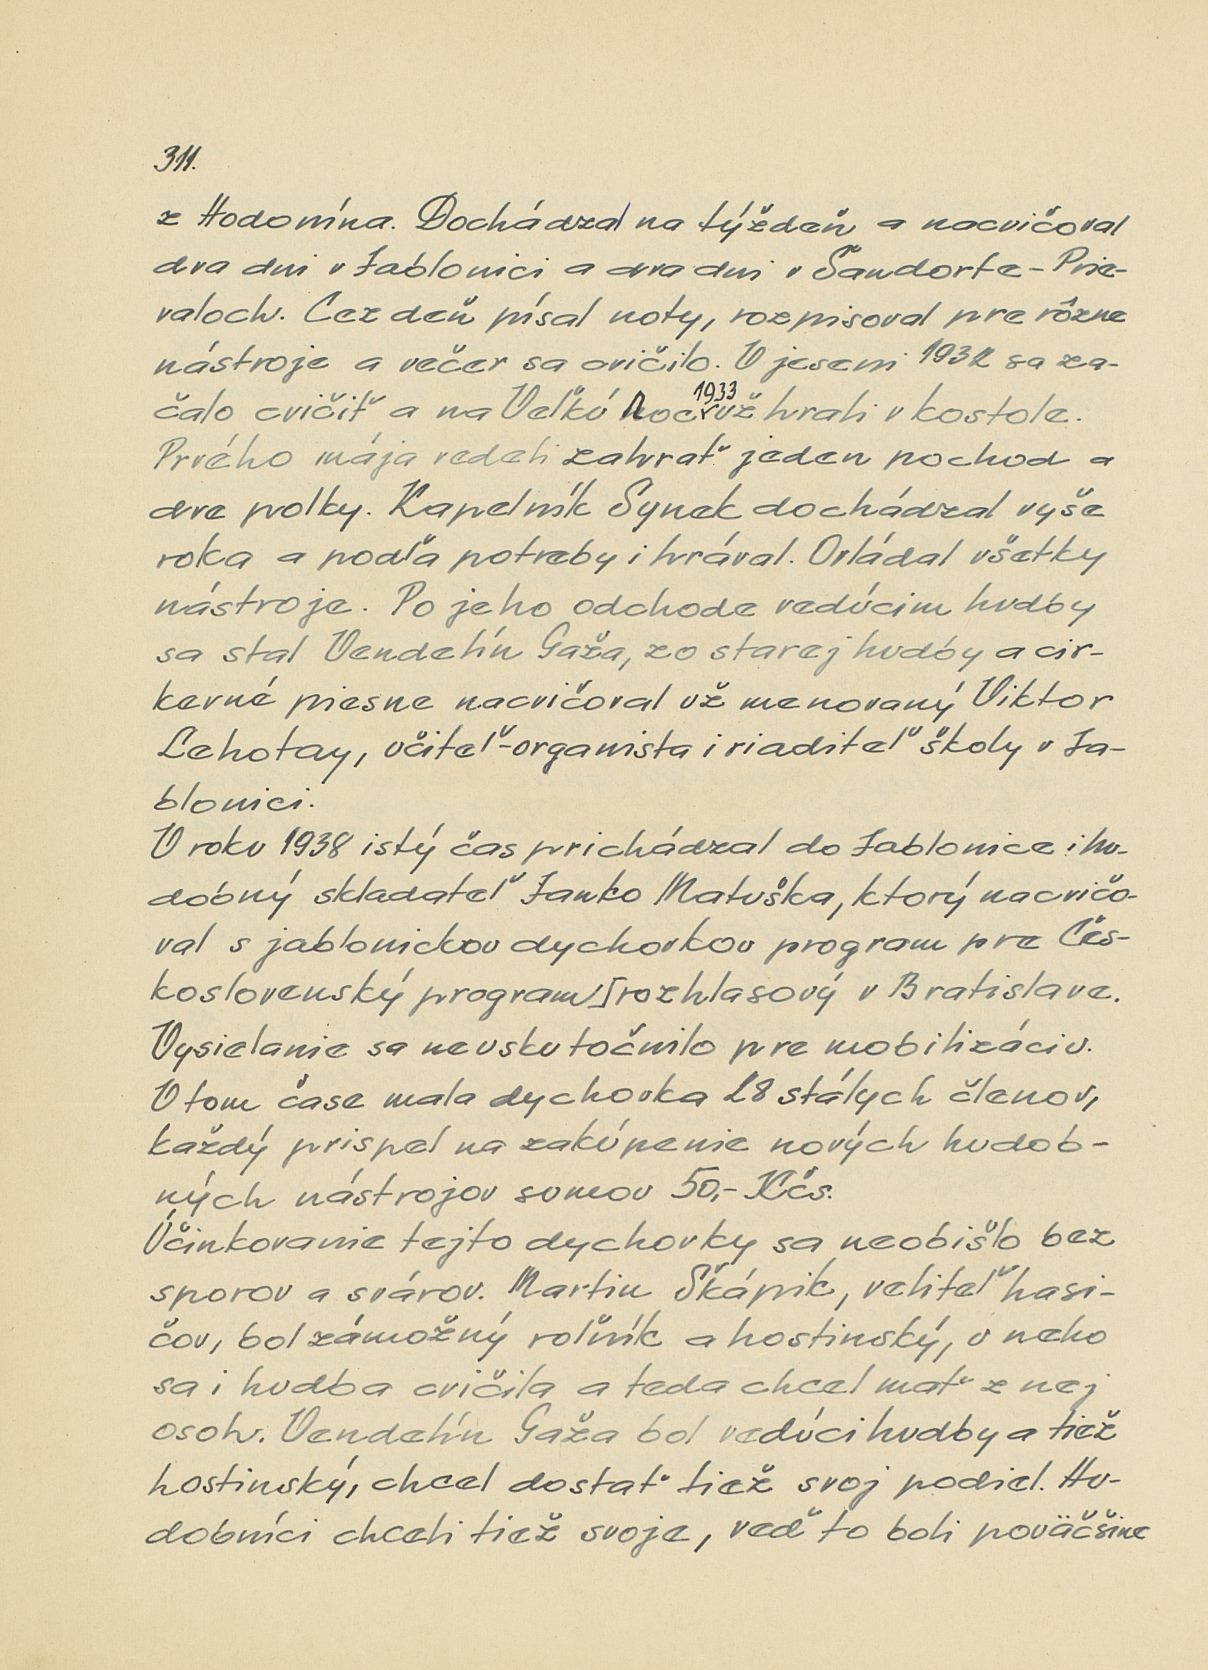 311.
z Hodonína. Dochádzal na týždeň a nacvičoval
dva dni v Jablonici a dva dni v Šandorfe-Prie-
valoch. Cez deň písal noty, rozpisoval pre rôzne
nástroje a večer sa cvičilo. V jeseni 1932 sa za-
čalo cvičiť a na Veľkú Noc 1933 už hrali v kostole.
Prvého mája vedeli zahrať jeden pochod a
dve polky. Kapelník Synek dochádzal vyše
roka a podľa potreby i hrával. Ovládal všetky
nástroje. Po jeho odchode vedúcim hudby
sa stal Vendelín Gaža, zo starej hudby a cir-
kevné piesne nacvičoval už menovaný Viktor
Lehotay, učiteľ-organista i riaditeľ školy v Ja-
blonici.
V roku 1938 istý čas prichádzal do Jablonice i hu-
dobný skladateľ Janko Matuška, ktorý nacvičo-
val s jablonickou dychovkou program pre Čes-
koslovenský program rozhlasový v Bratislave.
Vysielanie sa neuskutočnilo pre mobilizáciu.
V tom čase mala dychovka 28 stálych členov,
každý prispel na zakúpenie nových hudob-
ných nástrojov sumou 50,- Kčs.
Účinkovanie tejto dychovky sa neobišlo bez
sporov a svárov. Martin Škápik, veliteľ hasi-
čov, bol zámožný roľník a hostinský, u neho
sa i hudba cvičila a teda chcel mať z nej
osoh. Vendelín Gaža bol vedúci hudby a tiež
hostinský, chcel dostať tiež svoj podiel. Hu-
dobníci chceli tiež svoje, veď to boli poväčšine